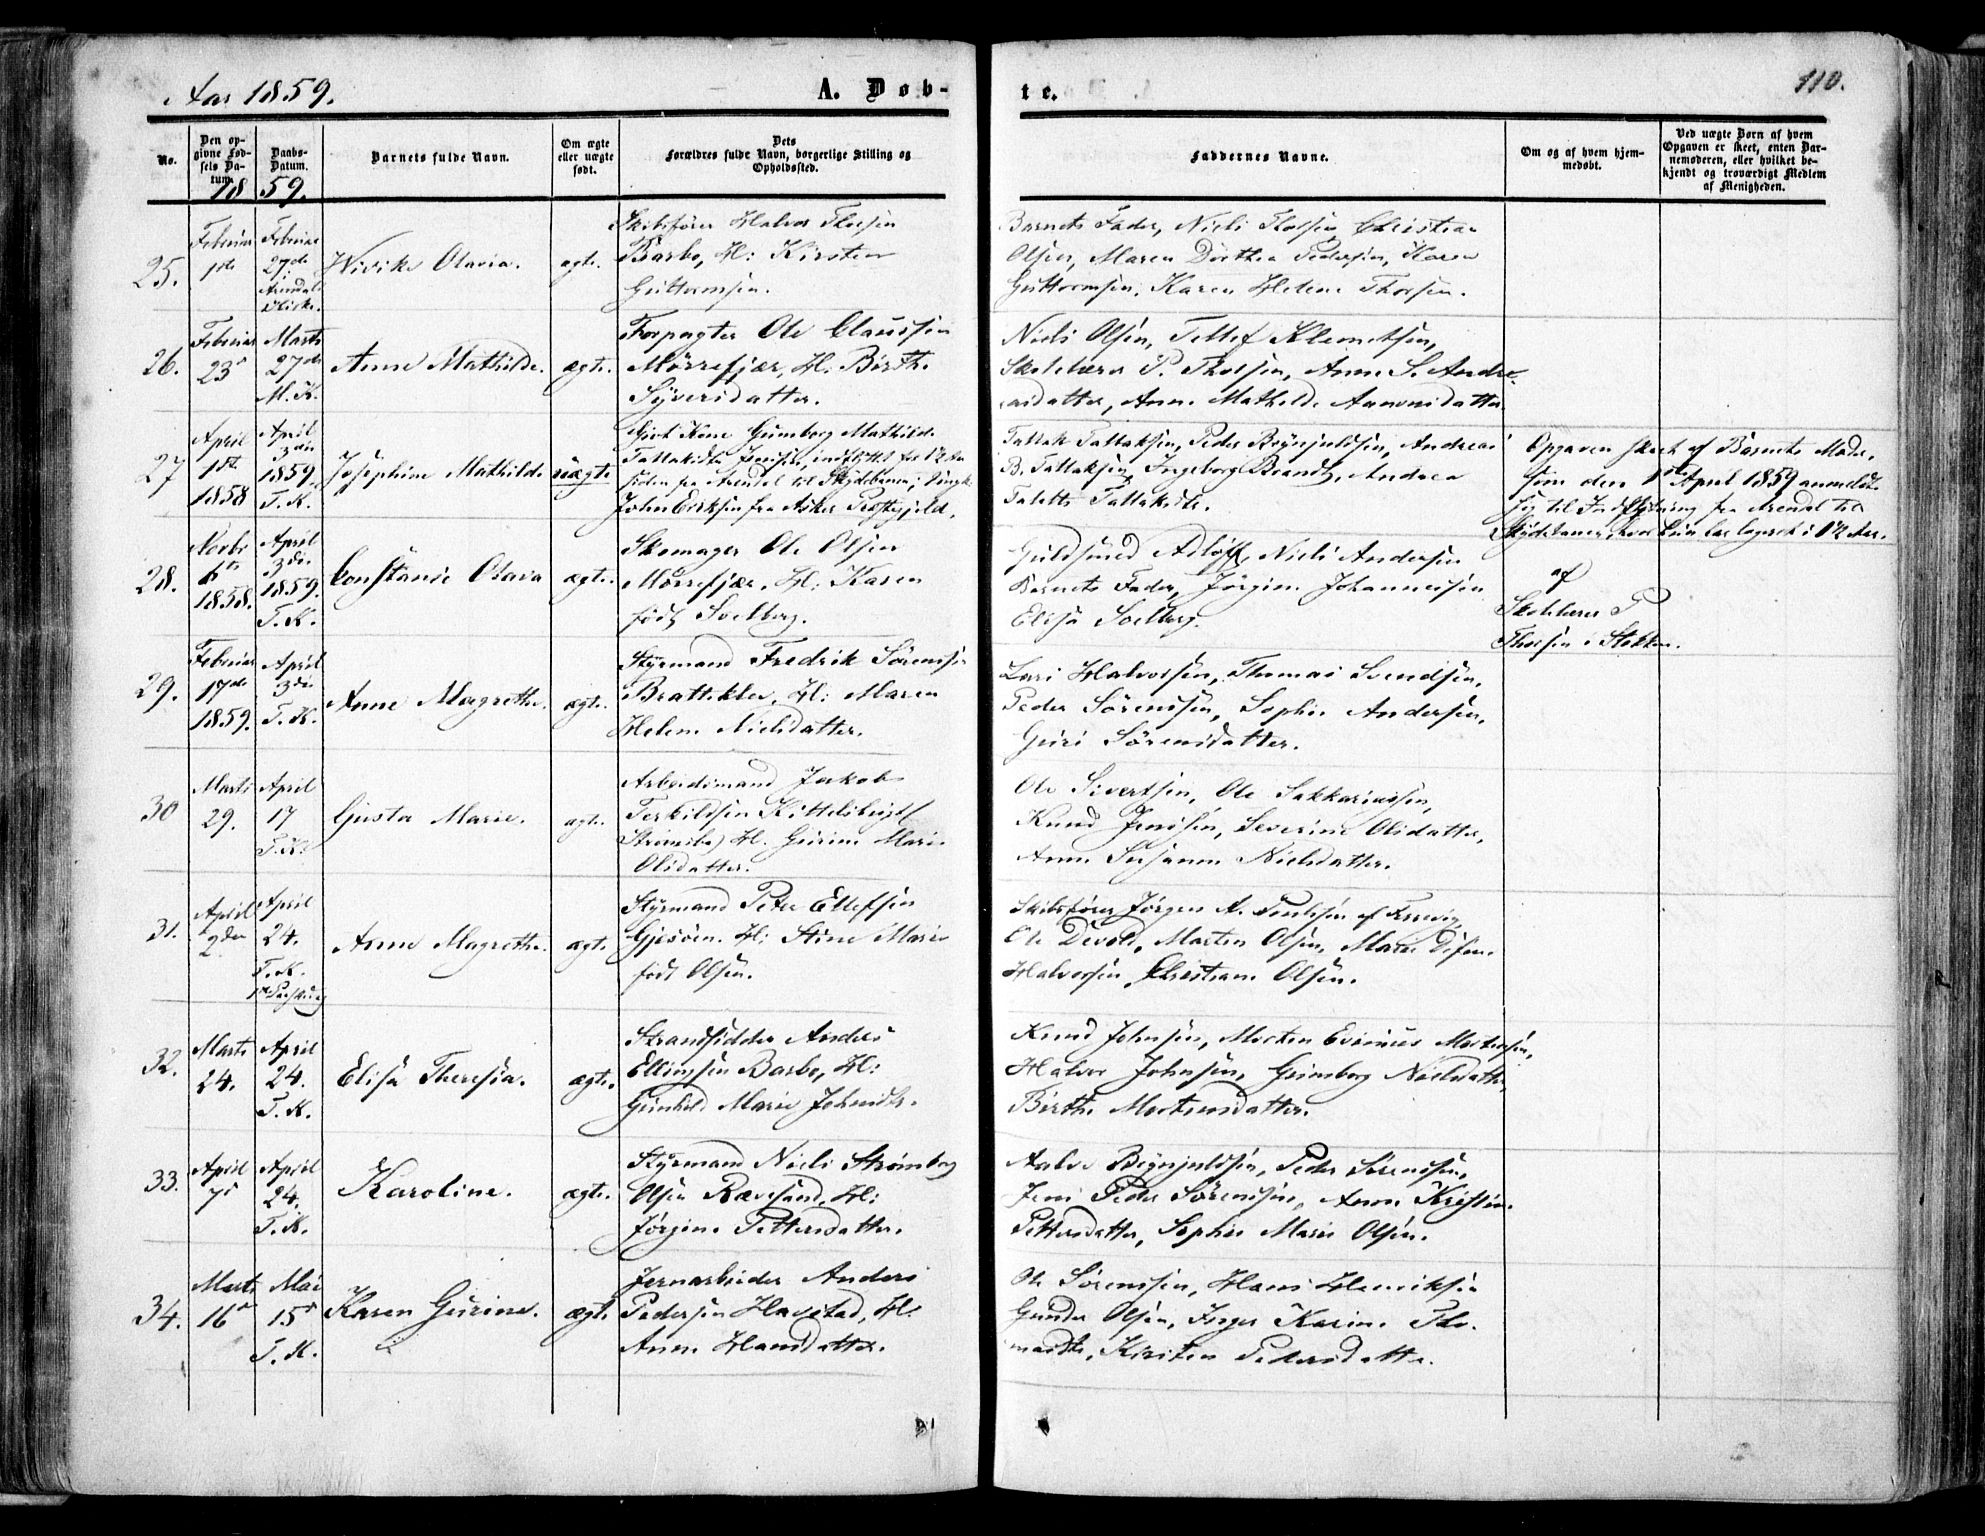 Aar 1859.
A. Døb-
te.
110.
No.
Den op-
givne Fød-
sels Da-
tum.
Daabs-
Datum.
Barnets fulde Navn.
Om ægte
eller uægte
født.
Dets
Forældres fulde Navn, borgerlige Stilling og
Opholdssted.
Faddernes Navne.
Om og af hvem hjem-
medøbt.
Ved uægte Børn af hvem
Opgaven er skeet, enten Bar-
nemoderen, eller hvilket be-
kjendt og troværdigt Medlem
af Menigheden.
18 59.
25.
Februar
1ste
Februar
27de
Arendals
Kirke.
Wivike Olavia.
ægte.
Skibsfører Halvor Thorsen
Barbo, H: Kirsten
Guttormsen.
Barnets Fader, Niels Thorsen, Christian
Olsen, Maren Dorthea Pedersen, Karen
Guttormsen, Karen Helene Thorsen.
26.
Februar
23de
Marts
27de
M. K.
Anne Mathilde.
ægte.
Forpagter Ole Claussen
Mørrefjær, H: Birthe
Syversdatter.
Niels Olsen, Tellef Klemetsen,
Skolelærer P. Thorsen, Anne S. Andre-
asdatter, Anne Mathilde Aanonsdatter
27
April
1ste
1858
April
3die
1859.
T. K.
Josephine Mathilde
uægte
Gift Kone Gunborg Mathilde
Tallaksdtr Jensen, indflyttet for 1/2 Aar
siden fra Arendal til Skydebanen; Ungk.
John Eriksen fra Asker Præstegjeld.
Tallak Tallaksen, Peder Brynjuldsen, Andreas
B. Tallaksen, Ingeborg Brandt, Andrea
Talette Tallaksdtr.
Opgaven skeet af Barnets Moder,
som den 1ste April 1859 anmeldte
sig til Indflytning fra Arendal til
Skydebanen, hvor hun har logeret i 1/2 Aar.
28.
Novbr
6te
1858.
April
3die
1859.
T. K.
Constance Olava
ægte.
Skomager Ole Olsen
Mørrefjær, H: Karen
født Solberg.
Guldsmed Adloff, Niels Andersen
Barnets Fader, Jørgine Johannesen
Elisa Solberg.
af
Skolelærer P
Thorsen i Stokken.
29.
Februar
17de
1859.
April
3die
T. K.
Anne Magrethe.
ægte.
Styrmand Fredrik Sørensen
Bratteklev, H: Maren
Helene Nielsdatter.
Lars Halvorsen, Thomas Svendsen,
Peder Sørensen, Sophie Andersen,
Guri Sørensdatter.
30
Marts
29.
April
17
T. K.
Gusta Marie.
ægte.
Arbeidsmand Jakob
Terkildsen Kittelsbugt
Strømsbo, H. Gurine Marie
Olsdatter.
Ole Sivertsen, Ole Sakkariassen,
Knud Jensen, Severine Olsdatter,
Anne Susanne Nielsdatter.
31.
April
2den
April
24.
T. K.
1ste Paaskedag
Anne Magrethe.
ægte.
Styrmand Peter Ellefsen
Gjesøen. H: Stine Marie
født Olsen.
Skibsfører Jørgen A. Poulsen af
Ole Devold, Morten Olsen, Maren
Halvorsen, Christiane Olsen.
32.
Marts
24.
April
24.
T. K.
Elisa Theresia.
ægte.
Strandsidder Anders
Ellingsen Barbo, H:
Gunhild Marie Johnsdtr.
Knud Johnsen, Morten Mortensen,
Halvor Johnsen, Gunborg Nielsdatter,
Birthe Mortensdatter.
33.
April
7de
April
24.
T. K.
Karoline.
ægte.
Styrmand Niels Strømberg
Olsen Rævesand, H:
Jørgine Pettersdatter.
Aalve Brynjuldsen, Peder Sørensen,
Jens Peder Sørensen, Anne Kristine
Pettersdatter, Sophie Marie Olsen.
34.
Marts
16de
Mai
15de
T. K.
Karen Gurine.
ægte.
Jernarbeider Anders
Pedersen Havstad, H:
Anne Hansdatter.
Ole Sørensen, Hans Henriksen
Gunder Olsen, Inger Karine Tho-
masdtr, Kirsten Pedersdatter.